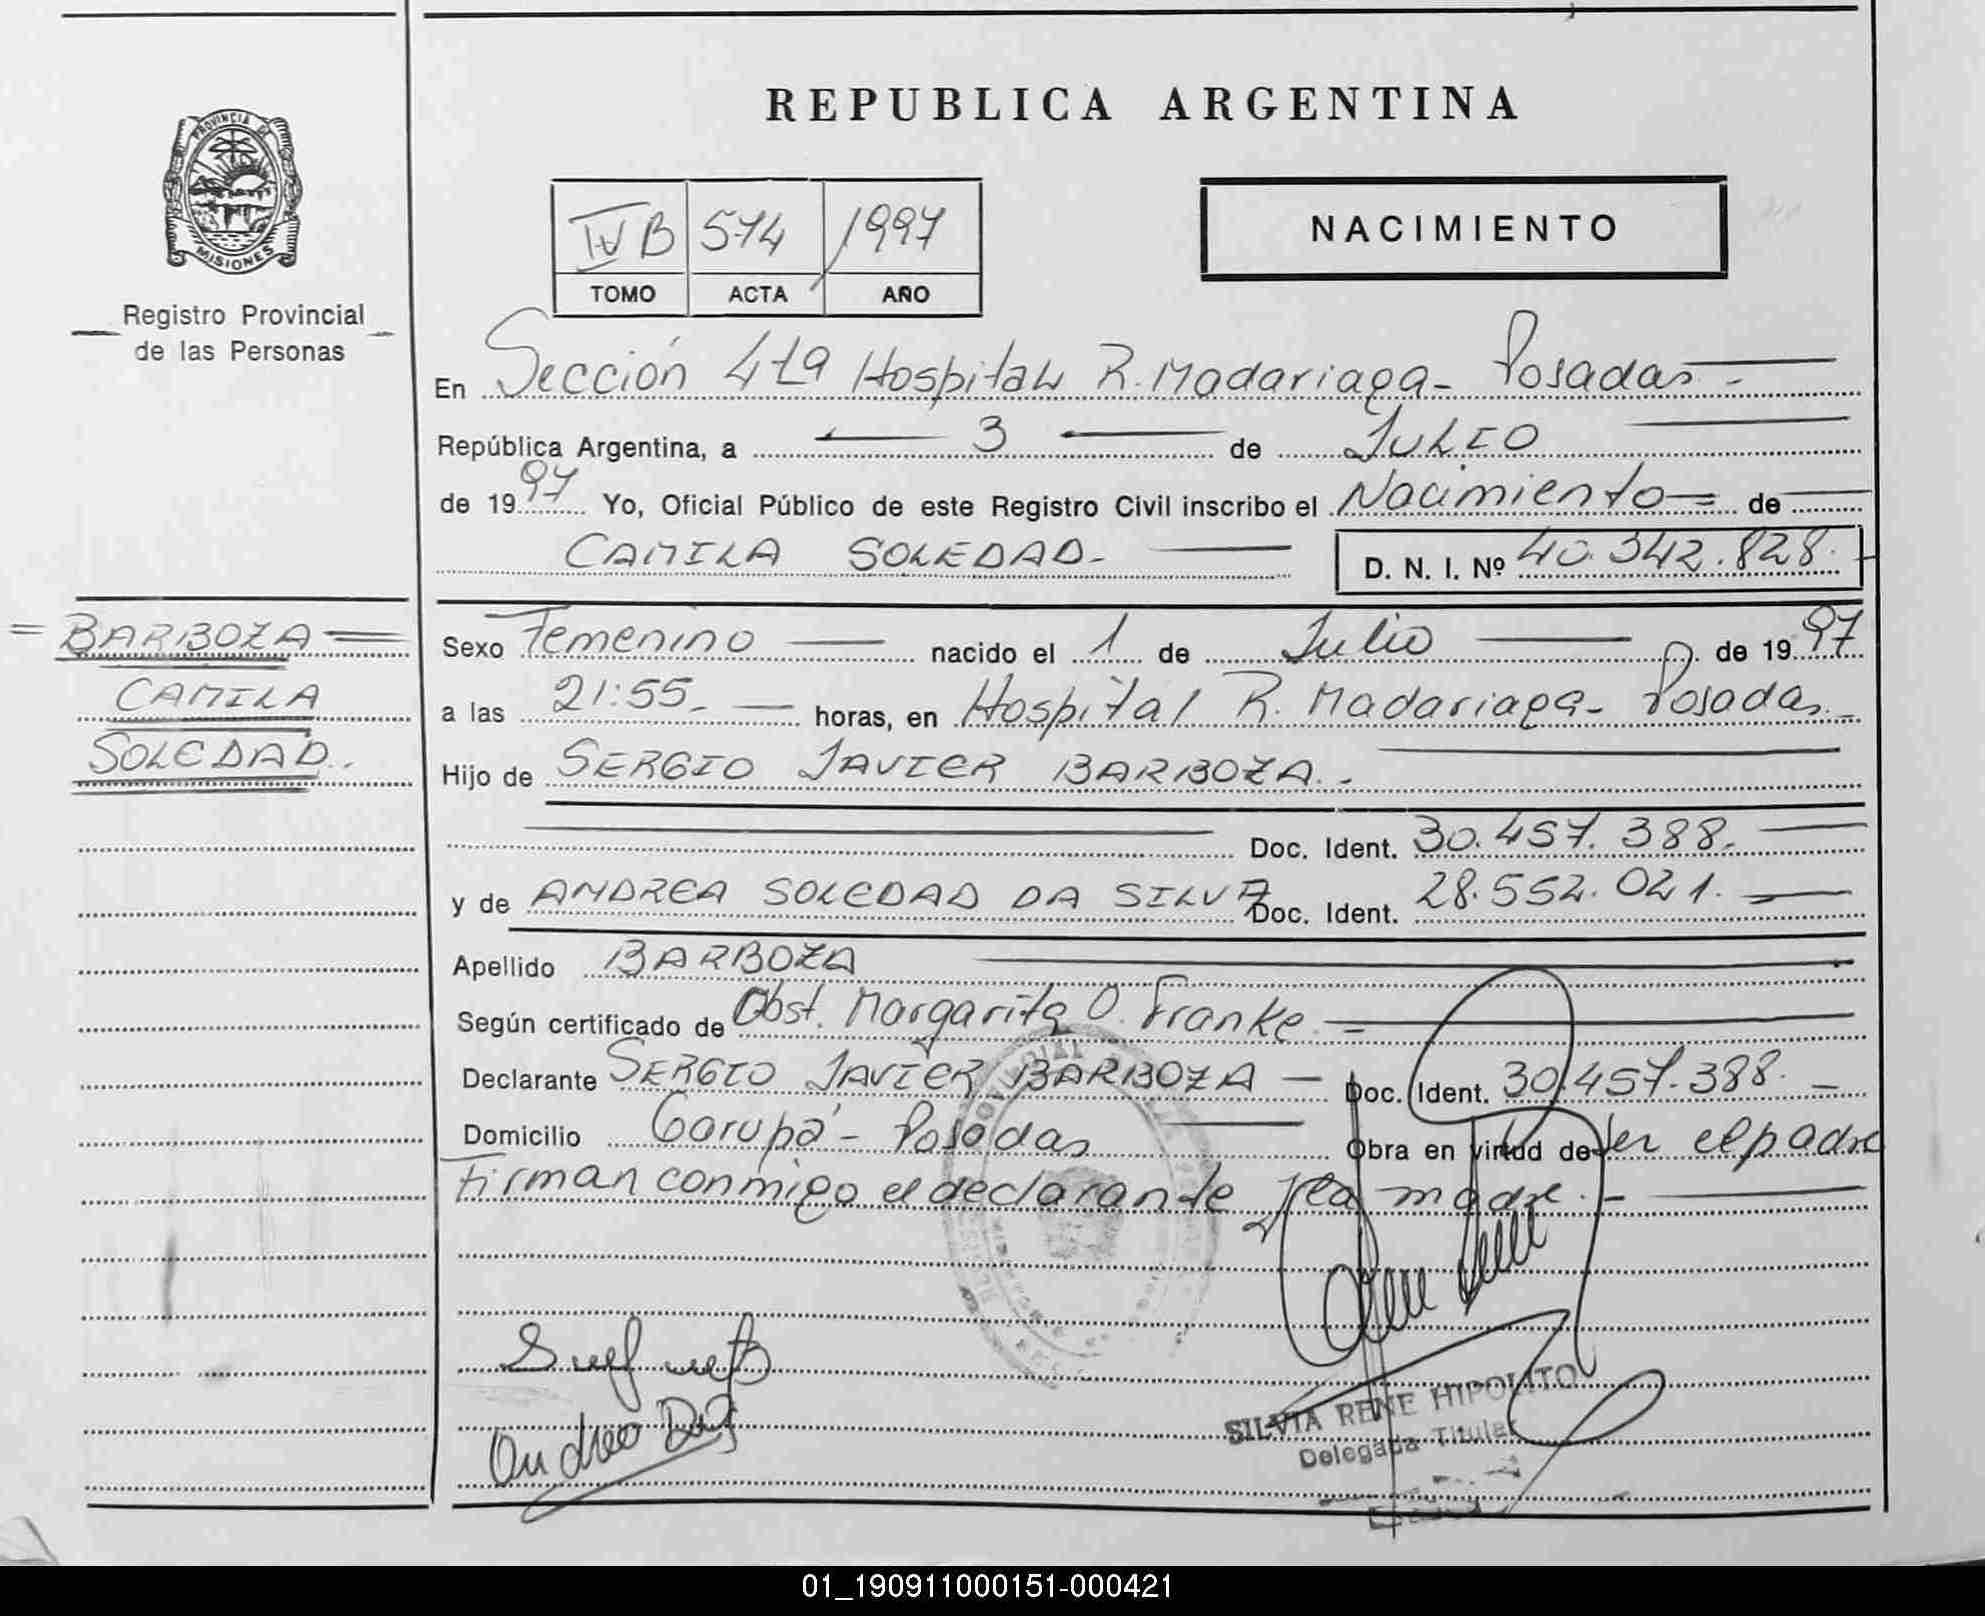 REPUBLICA ARGENTINA
PROVINCIA DE
MISIONES
Registro Provincial
de las Personas
IV B 574 1997
TOMO ACTA AÑO
NACIMIENTO
En Sección 4ta Hospital R. Madariaga - Posadas -
República Argentina, a 3 de JULIO
de 1997 Yo, Oficial Público de este Registro Civil inscribo el Nacimiento = de
CAMILA SOLEDAD - D. N. I. Nº 40.342.828.
= BARBOZA =
CAMILA
SOLEDAD..
Sexo Femenino nacido el 1 de Julio de 1997
a las 21:55 - horas, en Hospital R. Madariaga - Posadas -
Hijo de SERGIO JAVIER BARBOZA. -
Doc. Ident. 30.457.388. -
y de ANDREA SOLEDAD DA SILVA Doc. Ident. 28.552.021. -
Apellido BARBOZA
Según certificado de Obst. Margarita O. Franke. -
Declarante SERGIO JAVIER BARBOZA - Doc. Ident. 30.457.388. -
Domicilio Garupá - Posadas Obra en virtud de ser el padre
Firman conmigo el declarante y la madre. -
SILVIA RENE HIPOLITO
Delegada Titular
01_190911000151-000421